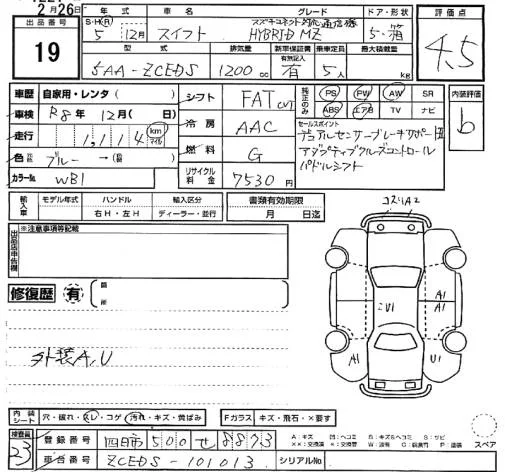 2月26日
出品番号 19
S・H・R 年式 車名 グレード ドア・形状
5年 12月 スイフト スズキコネクト対応通信機 HYBRID MZ 5・箱
型式 排気量 新車保証書 乗車定員 最大積載量
有無記入
5AA-ZCEDS 1200cc 有 5人 kg
評価点 4.5
車歴 自家用・レンタ( )
車検 R8年 12月( 日)
走行 1,114 km マイル
色 ブルー →( )
カラーNo. WB1
シフト FAT CVT
冷房 AAC
燃料 G
リサイクル料金 7530円
純正のみ PS PW AW SR
ABS エアB TV ナビ
セールスポイント
デュアルセンサーブレーキサポートII
アダプティブクルーズコントロール
パドルシフト
内装評価 b
輸入車 モデル年式 ハンドル 輸入区分
右H・左H ディーラー・並行
書類有効期限
月 日迄
出品店申告欄 ※注意事項等記載
修復歴 有 箇所
コスリA2
A1
A1
A1
U1
外装A,U
内装シート 穴・破れ・スレ・コゲ・汚れ・キズ・黄ばみ Fガラス キズ・飛石・×要す
検査員 23
登録番号 四日市500せ8873
車台番号 ZCEDS-101013 シリアルNo.
A:キズ U:ヘコミ B:キズ&ヘコミ S:サビ
スペア